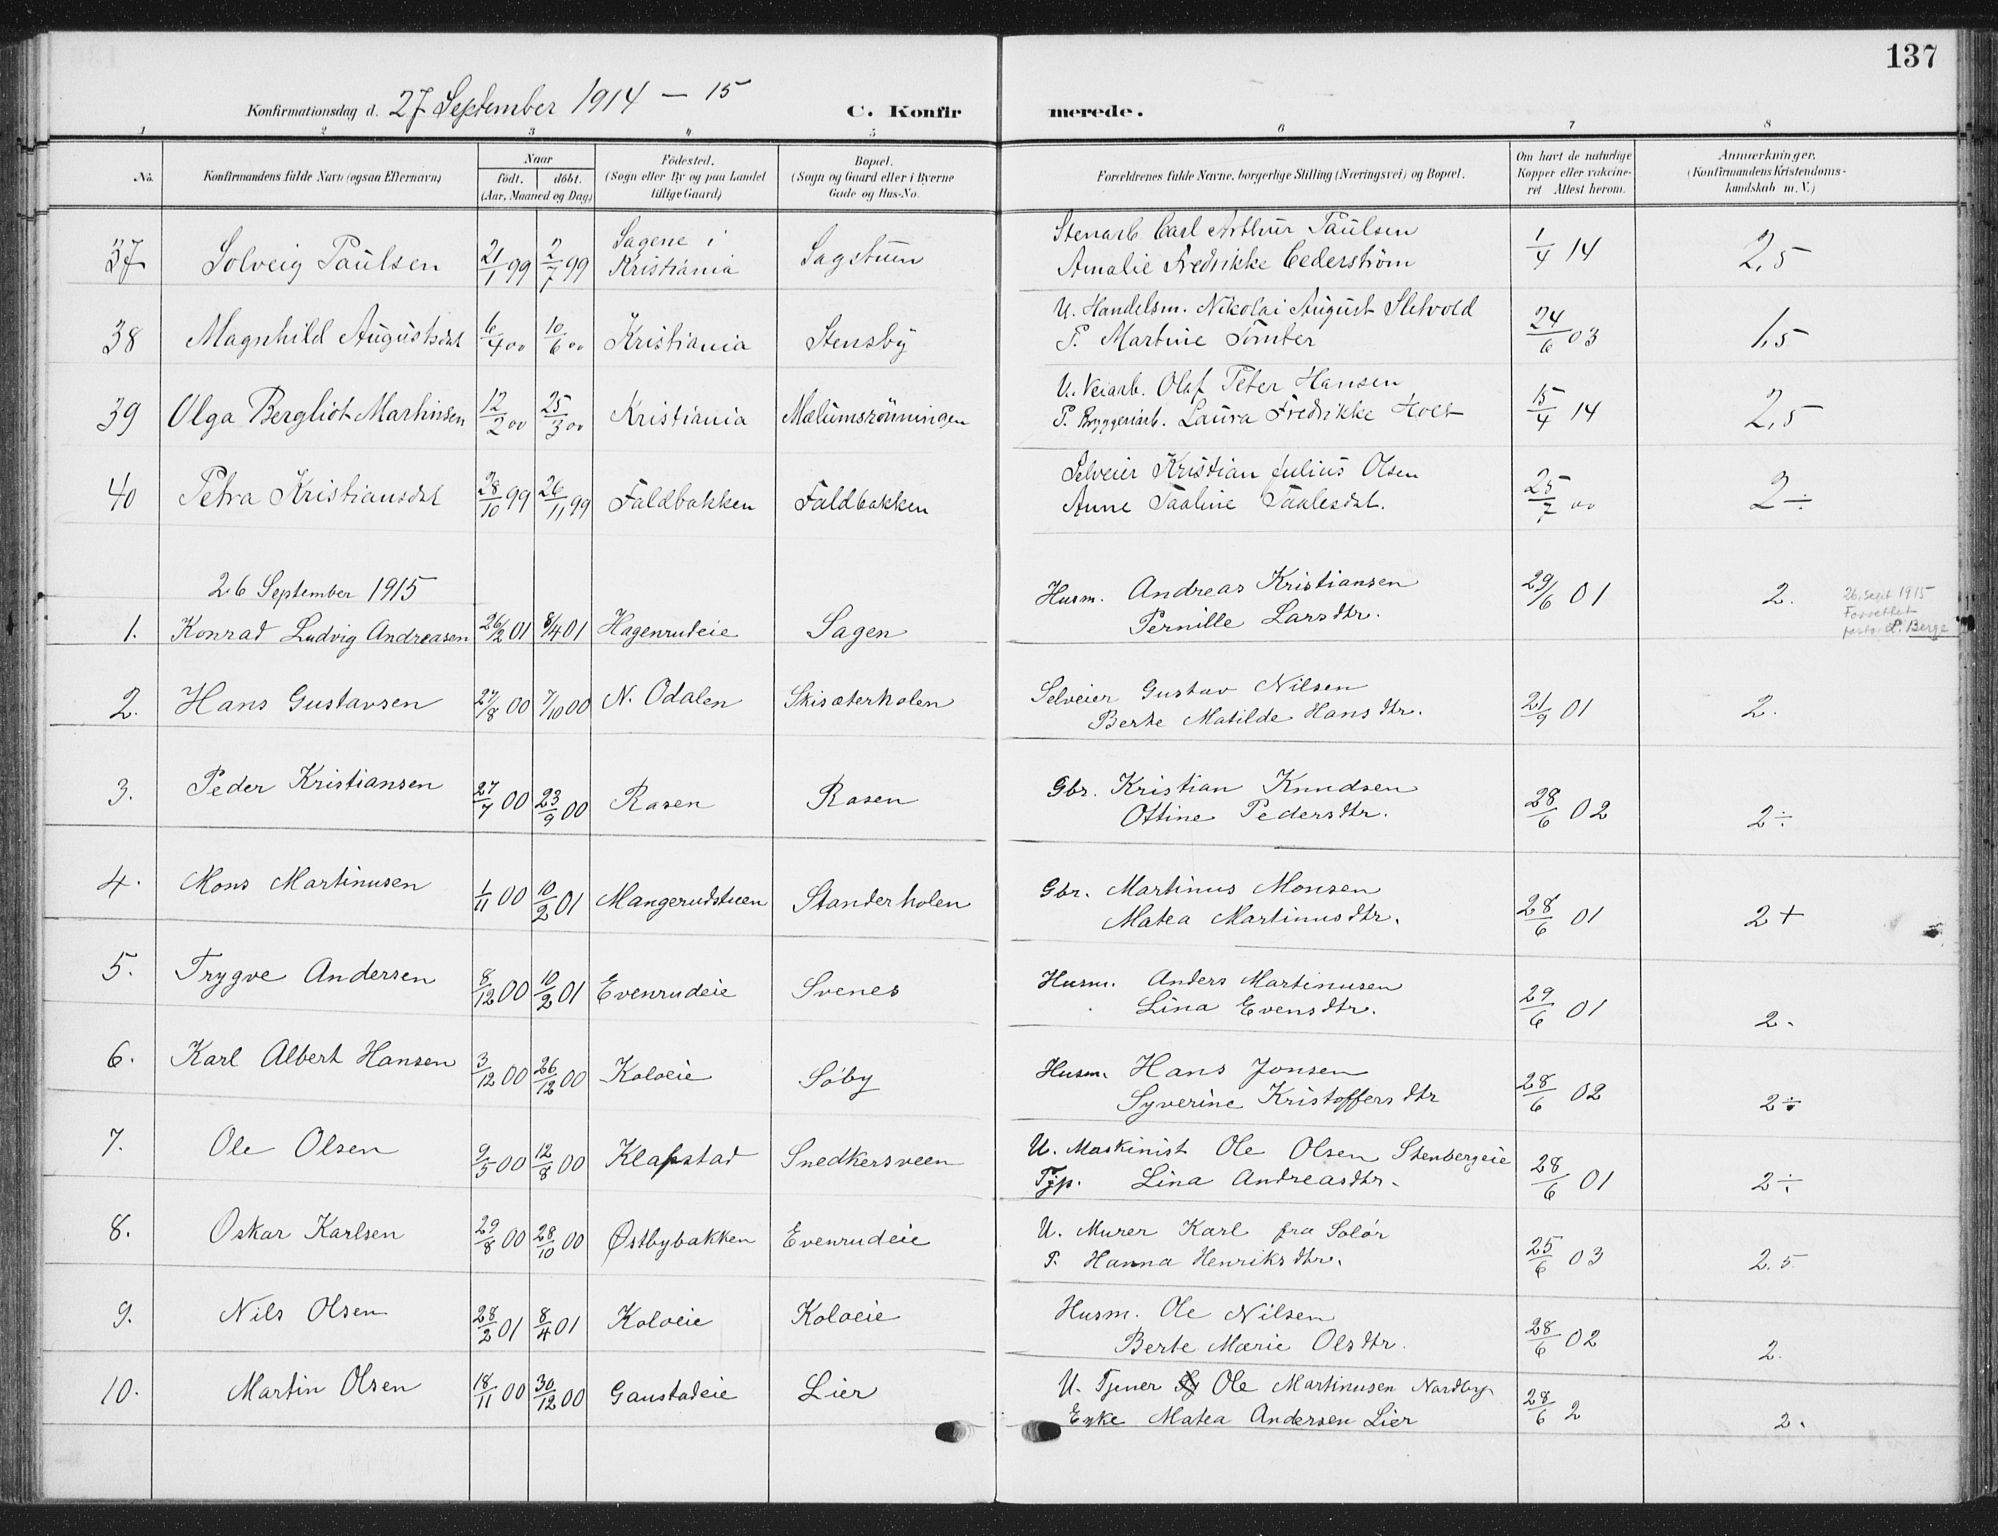 137
Konfirmationsdag d. 27 September 1914 – 15
C. Konfirmerede.
1 2 3 4 5 6 7 8
No.
Konfirmandens fulde Navn (ogsaa Efternavn)
Naar
født. døbt.
(Aar, Maaned og Dag)
Födested.
(Sogn eller By og paa Landet
tillige Gaard)
Bopæl.
(Sogn og Gaard eller i Byerne
Gade og Hus-No.
Forældrenes fulde Navne, borgerlige Stilling (Næringsvei) og Bopæl.
Om havt de naturlige
Kopper eller vakcine-
ret Attest herom.
Anmærkninger.
(Konfirmandens Kristendoms-
kundskab m. V.)
37 Solveig Paulsen 21/1 99 2/7 99 Sagene i Kristiania Sagstuen
Stenarb Carl Arthur Paulsen
Amalie Fredrikke Cederstrøm
1/4 14 2,5
38 Magnhild Augustsdat 6/4 00 10/6 00 Kristiania Stensby
U. Handelsm. Nikolai August Sletvold
P. Martine Tømter
24/6 03 1,5
39 Olga Bergliot Martinsen 12/2 00 25/3 00 Kristiania Mælumsrønningen
U. Veiarb. Olaf Peter Hansen
P. Bryggeriarb. Laura Fredrikke Holt
15/4 14 2,5
40 Petra Kristiansdat 28/10 99 26/11 99 Faldbakken Faldbakken
Selveier Kristian Julius Olsen
Anne Taaline Taalesdat.
25/7 00 2 ÷
26 September 1915
1. Konrad Ludvig Andreasen 26/2 01 8/4 01 Hagenrudeie Sagen
Husm. Andreas Kristiansen
Pernille Larsdtr.
29/6 01 2.
26. Sept 1915
Forrettet
pastor L. Berge
2. Hans Gustavsen 27/8 00 7/10 00 N. Odalen Skisæterholen
Selveier Gustav Nilsen
Berte Matilde Hansdtr.
21/9 01 2.
3. Peder Kristiansen 27/7 00 23/9 00 Rasen Rasen
Gbr. Kristian Knudsen
Ottine Pedersdtr.
28/6 02 2 ÷
4. Mons Martinusen 1/11 00 10/2 01 Mangerudstuen Standerholen
Gbr. Martinus Monsen
Matea Martinusdtr.
28/6 01 2 +
5. Trygve Andersen 8/12 00 10/2 01 Evenrudeie Svenes
Husm. Anders Martinusen
Lina Evensdtr.
29/6 01 2.
6. Karl Albert Hansen 3/12 00 26/12 00 Koloeie Søby
Husm. Hans Jonsen
Syverine Kristoffersdtr
28/6 02 2 ÷
7. Ole Olsen 9/5 00 12/8 00 Klapstad Snedkersveen
U. Maskinist Ole Olsen Stenbergeie
Tjp. Lina Andreasdtr.
28/6 01 2 ÷
8. Oskar Karlsen 29/8 00 28/10 00 Østbybakken Evenrudeie
U. Murer Karl fra Solør
P. Hanna Henriksdtr.
25/6 03 2.5
9. Nils Olsen 28/2 01 8/4 01 Koloeie Koloeie
Husm. Ole Nilsen
Berte Marie Olsdtr.
28/6 02 2.
10. Martin Olsen 18/11 00 30/12 00 Gaustadeie Lier
U. Tjener Ole Martinusen Nordby
Enke Matea Andersen Lier
28/6 2 2.